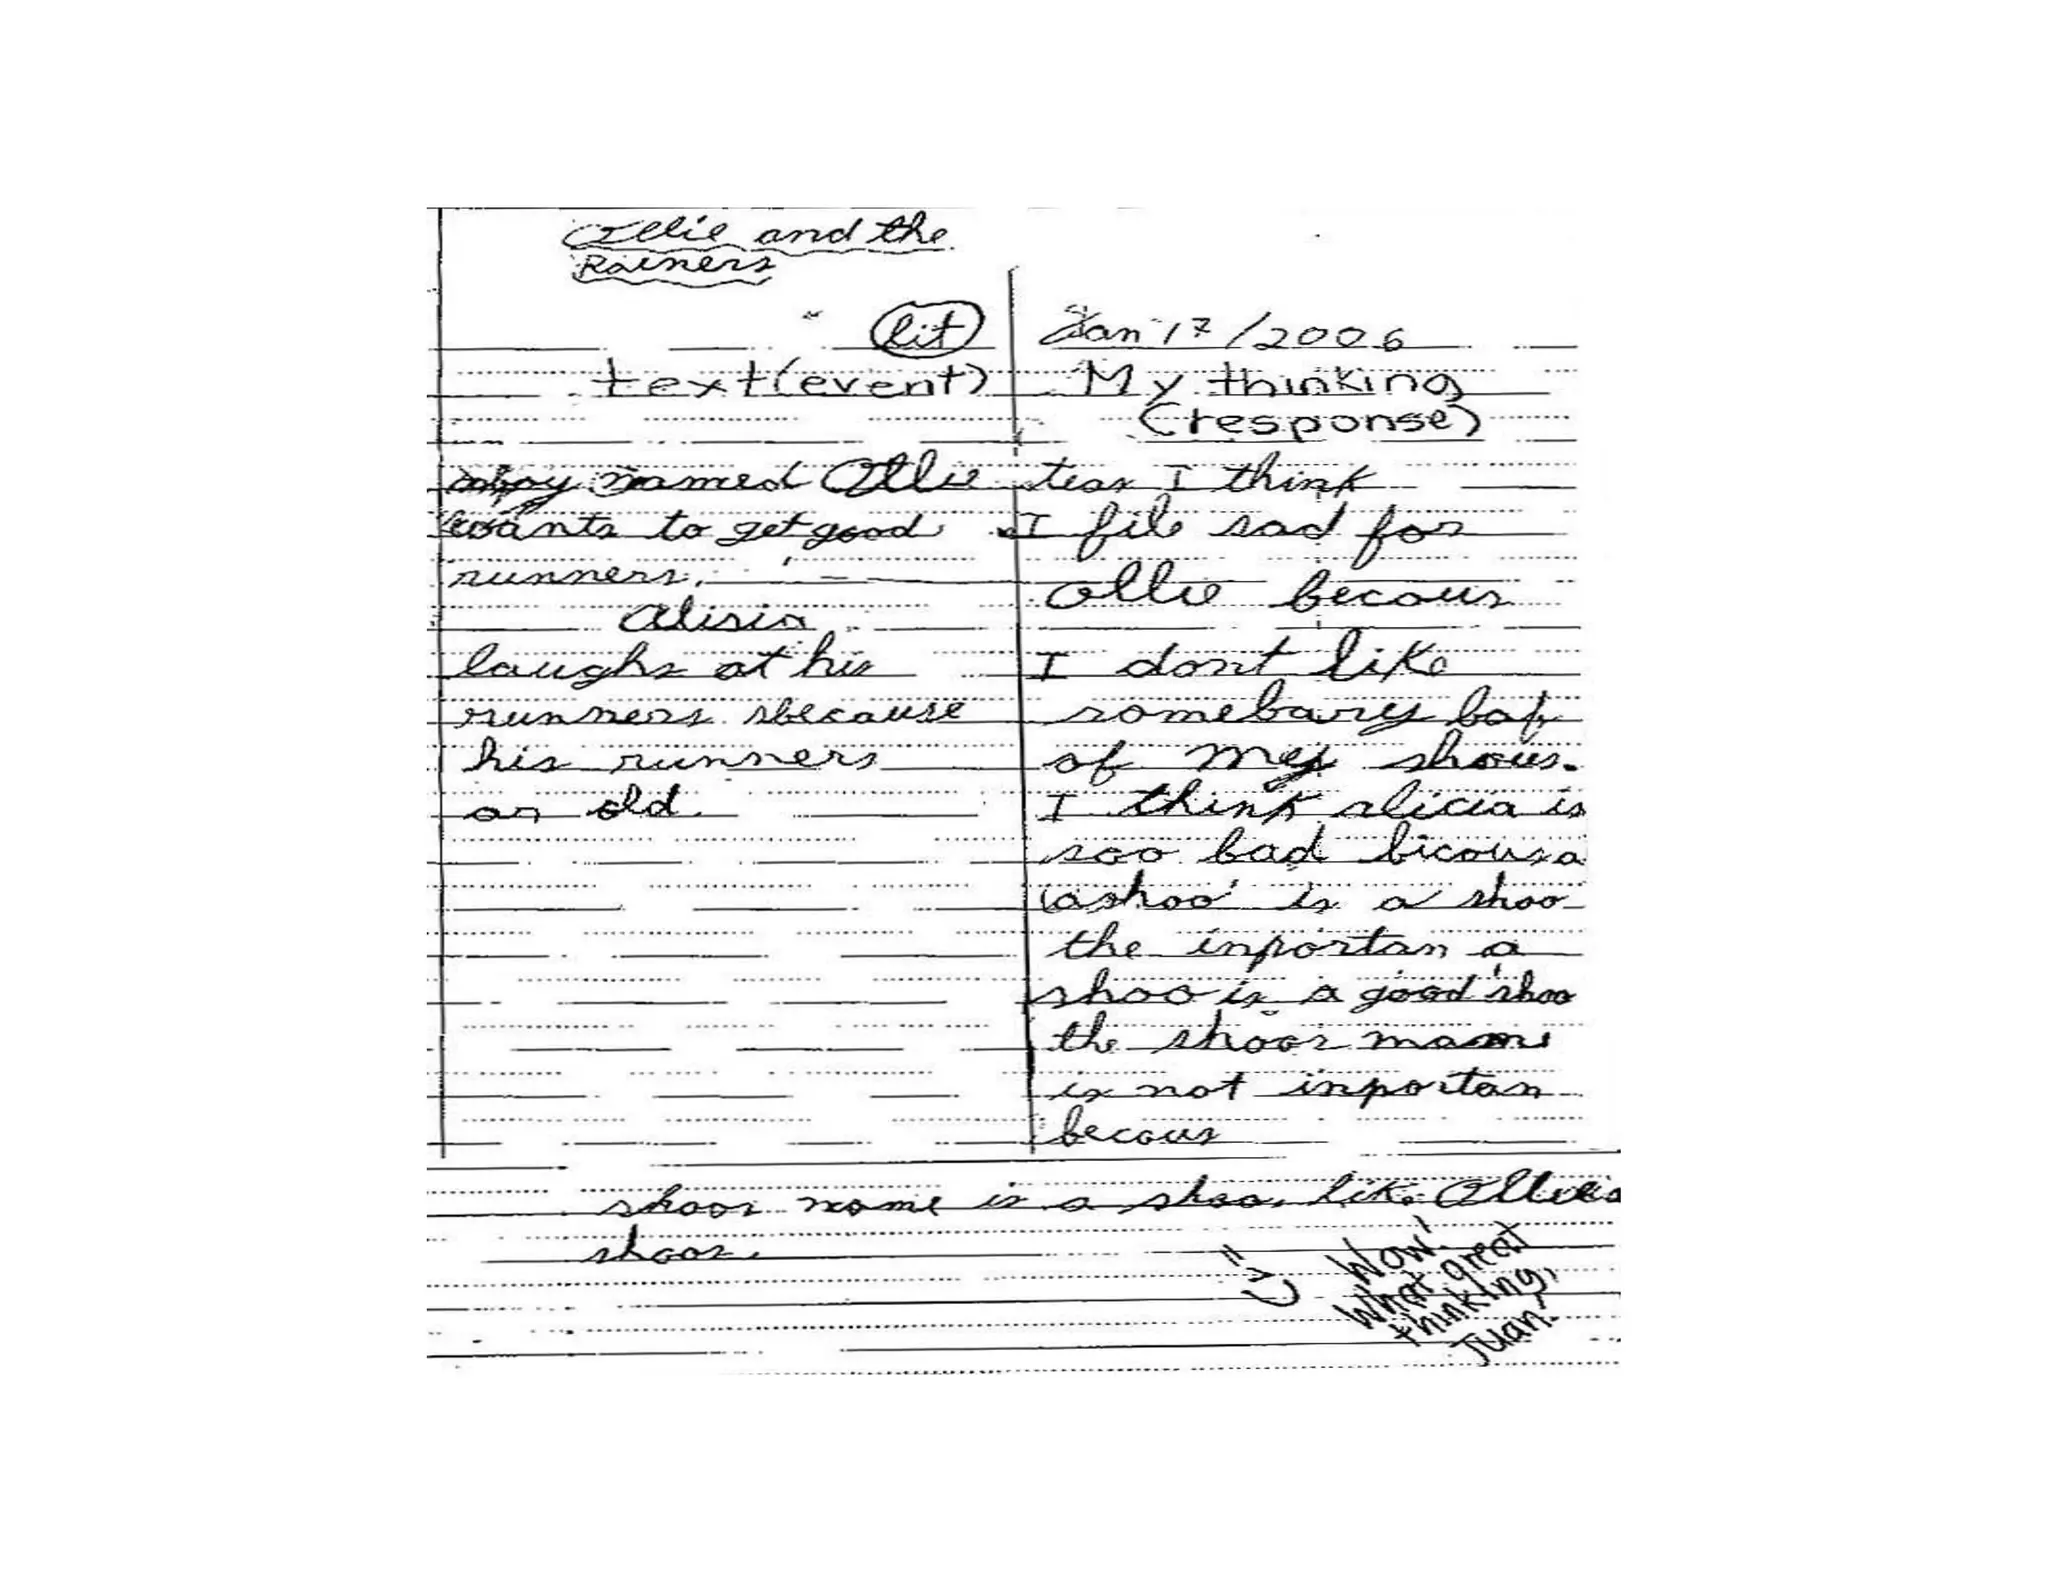 Ollie and the
Rainers
lit
Jan 17/2006
text (event)
My thinking
(response)
a boy named Ollie
wants to get good
runners.
Alisia
laughs at his
runners because
his runners
ar old.
I think
I file sad for
Ollie becous
I dont like
of my shous.
I think alicia is
soo bad bicous a
a shoo is a shoo
the inportan a
shoo is a good shoo
the shoos name
is not inportan
becous
shoos name is a shoo like Ollies
shoos.
Wow!
What great
thinking,
Juan!